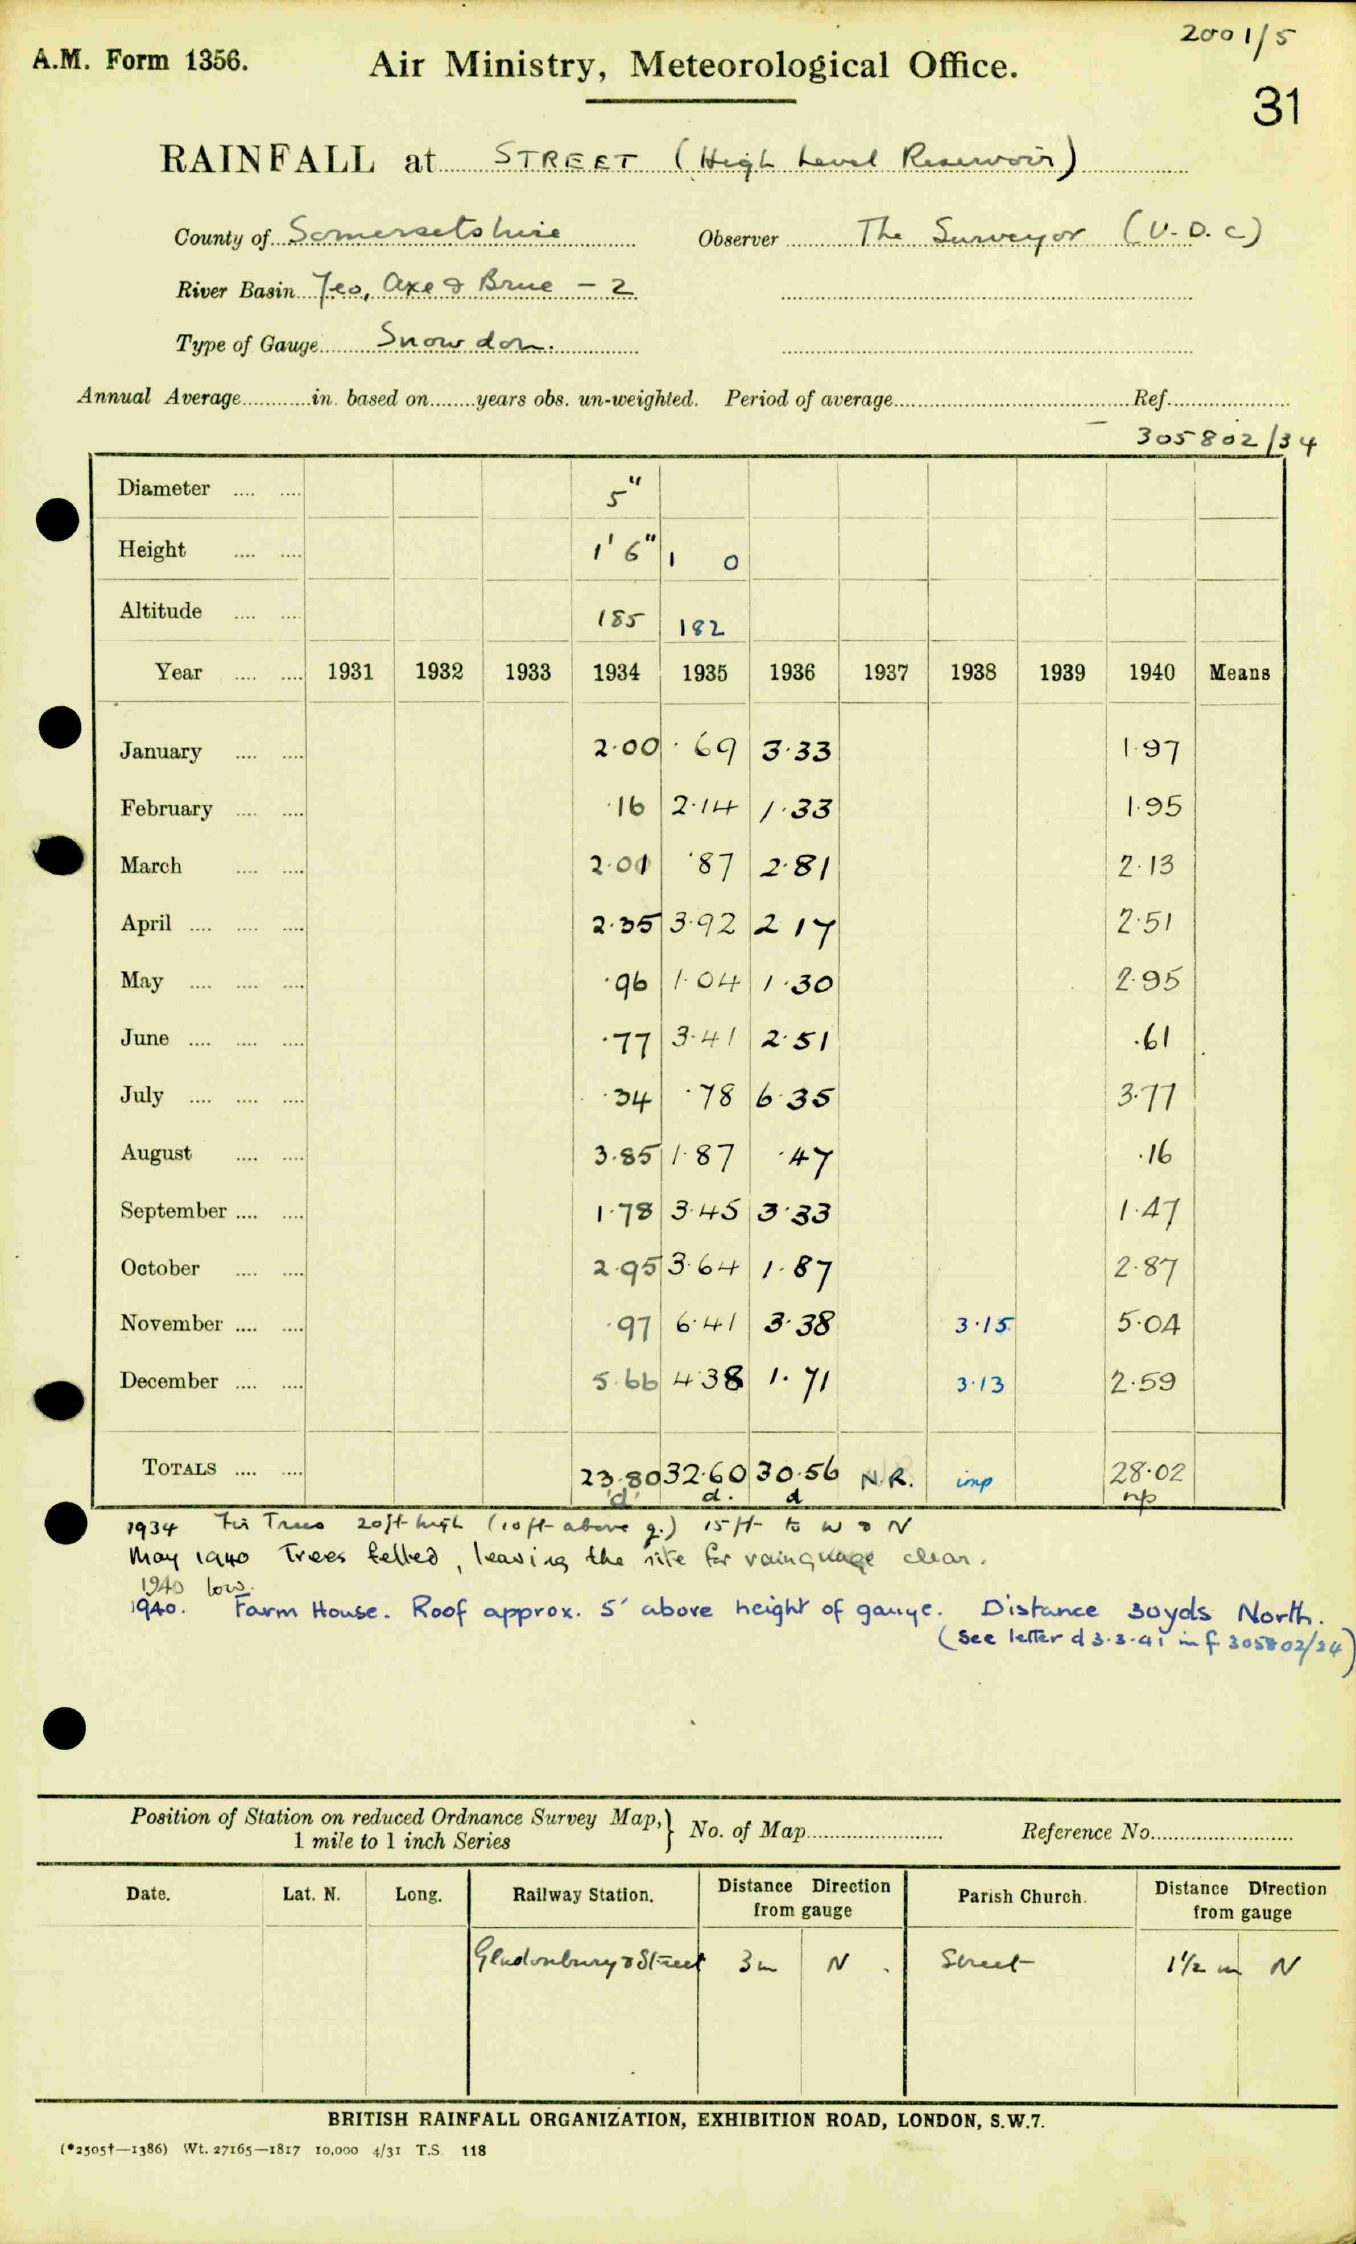 2001/5
A.M. Form 1356. Air Ministry, Meteorological Office.
31
RAINFALL at STREET (High Level Reservoir)
County of Somersetshire Observer The Surveyor (U.D.C)
River Basin Yeo, Axe & Brue - 2
Type of Gauge Snowdon.
Annual Average in. based on years obs. un-weighted. Period of average Ref.
305802/34
Diameter 5"
Height 1' 6" 1 0
Altitude 185 182
Year 1931 1932 1933 1934 1935 1936 1937 1938 1939 1940 Means
January 2·00 ·69 3·33 1·97
February ·16 2·14 1·33 1·95
March 2·01 ·87 2·81 2·13
April 2·35 3·92 2 17 2·51
May ·96 1·04 1·30 2·95
June ·77 3·41 2·51 ·61
July ·34 ·78 6·35 3·77
August 3·85 1·87 ·47 ·16
September 1·78 3·45 3·33 1·47
October 2·95 3·64 1·87 2·87
November ·97 6·41 3·38 3·15 5·04
December 5·66 4·38 1·71 3·13 2·59
TOTALS 23·80 32·60 30·56 N.R. imp 28·02
d d. d np
1934 Fir Trees 20ft high (10ft above g.) 15ft to W & N
May 1940 Trees felled, leaving the site for rainguage clear.
1940 low.
1940. Farm House. Roof approx. 5' above height of gauge. Distance 30yds North.
(See letter d 3·3·41 in f 305802/34)
Position of Station on reduced Ordnance Survey Map, } No. of Map Reference No.
1 mile to 1 inch Series
Date. Lat. N. Long. Railway Station. Distance Direction from gauge Parish Church. Distance Direction from gauge
Glastonbury & Street 3m N. Street 1½ m N
BRITISH RAINFALL ORGANIZATION, EXHIBITION ROAD, LONDON, S.W.7.
(*2505†—1386) Wt. 27165—1817 10,000 4/31 T.S. 118